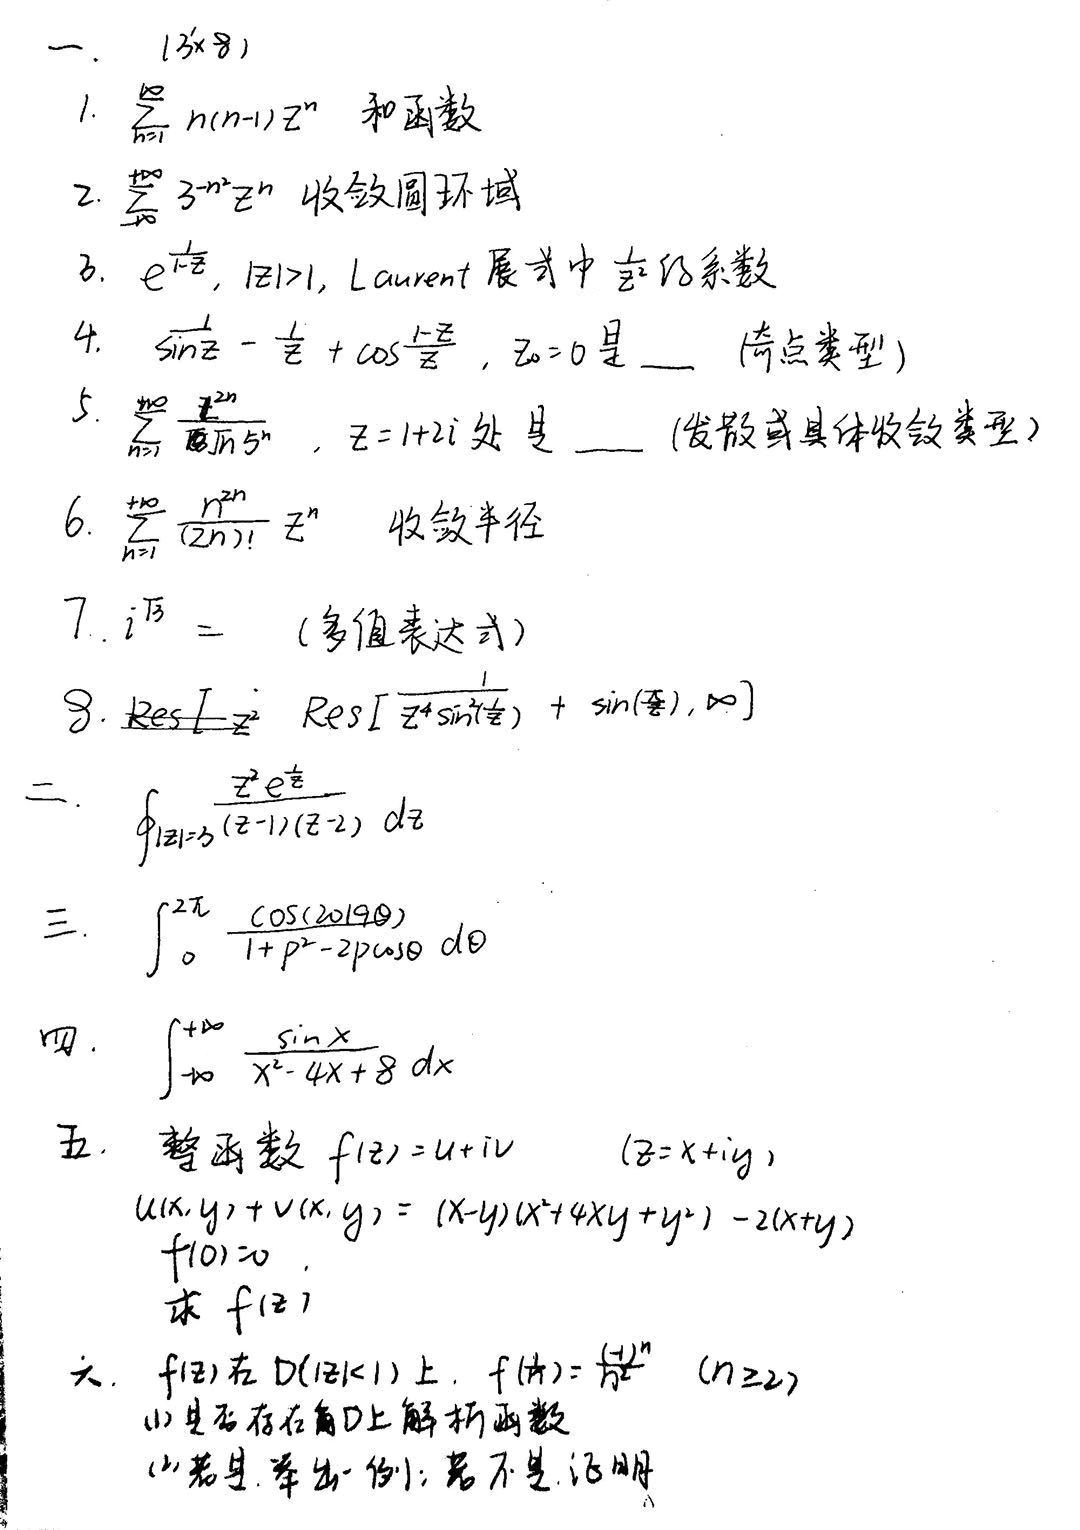 一. (3'×8)
1. $\sum_{n=1}^{+\infty} n(n-1)z^n$ 和函数
2. $\sum_{-\infty}^{+\infty} 3^{-n^2}z^n$ 收敛圆环域
3. $e^{\frac{1}{1-z}}$, |z|>1, Laurent展式中 $\frac{1}{z^2}$ 的系数
4. $\frac{1}{\sin z} - \frac{1}{z} + \cos\frac{1-z}{z}$, $z_0=0$ 是 ___ (奇点类型)
5. $\sum_{n=1}^{+\infty} \frac{z^{2n}}{\sqrt{n}5^n}$, z=1+2i 处是 ___ (发散或具体收敛类型)
6. $\sum_{n=1}^{+\infty} \frac{n^{2n}}{(2n)!} z^n$ 收敛半径
7. $i^{\sqrt{3}}$ = (多值表达式)
8. Res[ $z^2$ Res[ $\frac{1}{z^4\sin^2(\frac{1}{z})}$ + sin( ), ∞]
二. $\oint_{|z|=3} \frac{z^2e^{\frac{1}{z}}}{(z-1)(z-2)} dz$
三. $\int_0^{2\pi} \frac{\cos(2019\theta)}{1+p^2-2p\cos\theta} d\theta$
四. $\int_{-\infty}^{+\infty} \frac{\sin x}{x^2-4x+8} dx$
五. 整函数 f(z)=u+iv (z=x+iy)
u(x,y)+v(x,y)=(x-y)(x²+4xy+y²)-2(x+y)
f(0)=0.
求 f(z)
六. f(z)在D(|z|<1)上. $f(\frac{1}{n})=\frac{(-1)^n}{n^2}$ (n≥2)
(1) 是否存在 D上解析函数
(2) 若是.举出一例; 若不是.证明